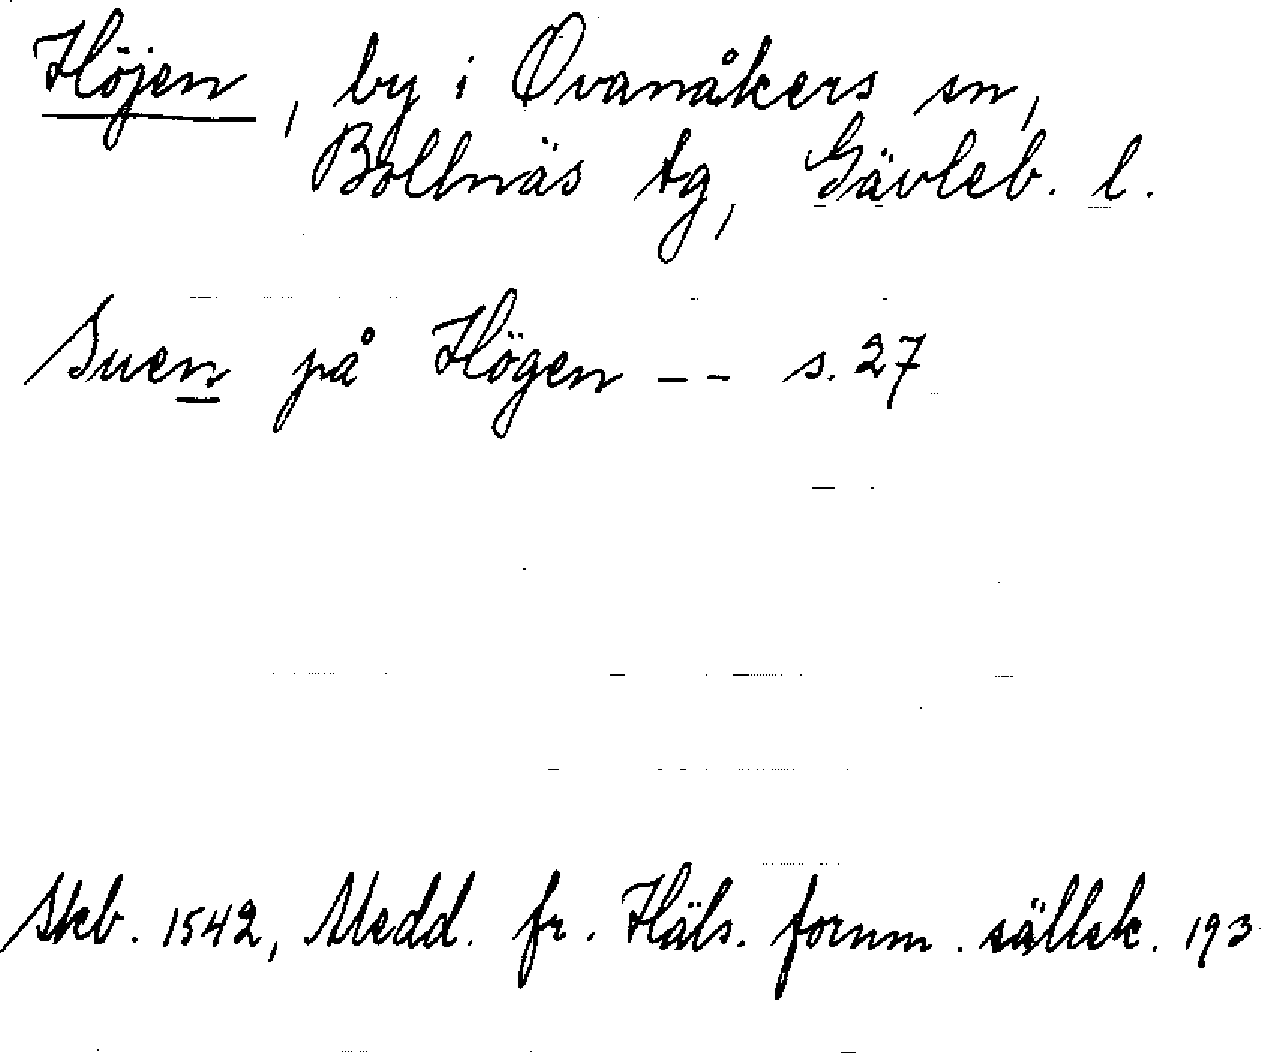 Höjen, by i Ovanåkers sn,
Bollnäs tg, Gävleb. l.
Suen på Högen -- s. 27
Skb. 1542, Medd. fr. Häls. fornm. sällsk. 193